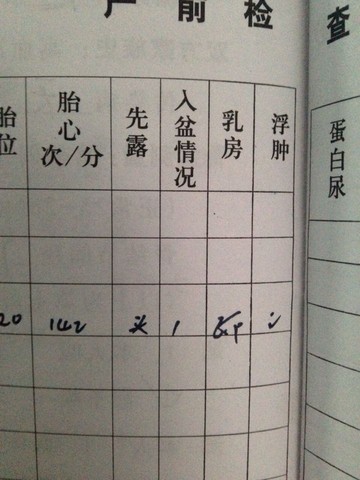 产前检
查
胎位
胎心
次/分
先露
入盆情况
乳房
浮肿
蛋白尿
20 142 头 1